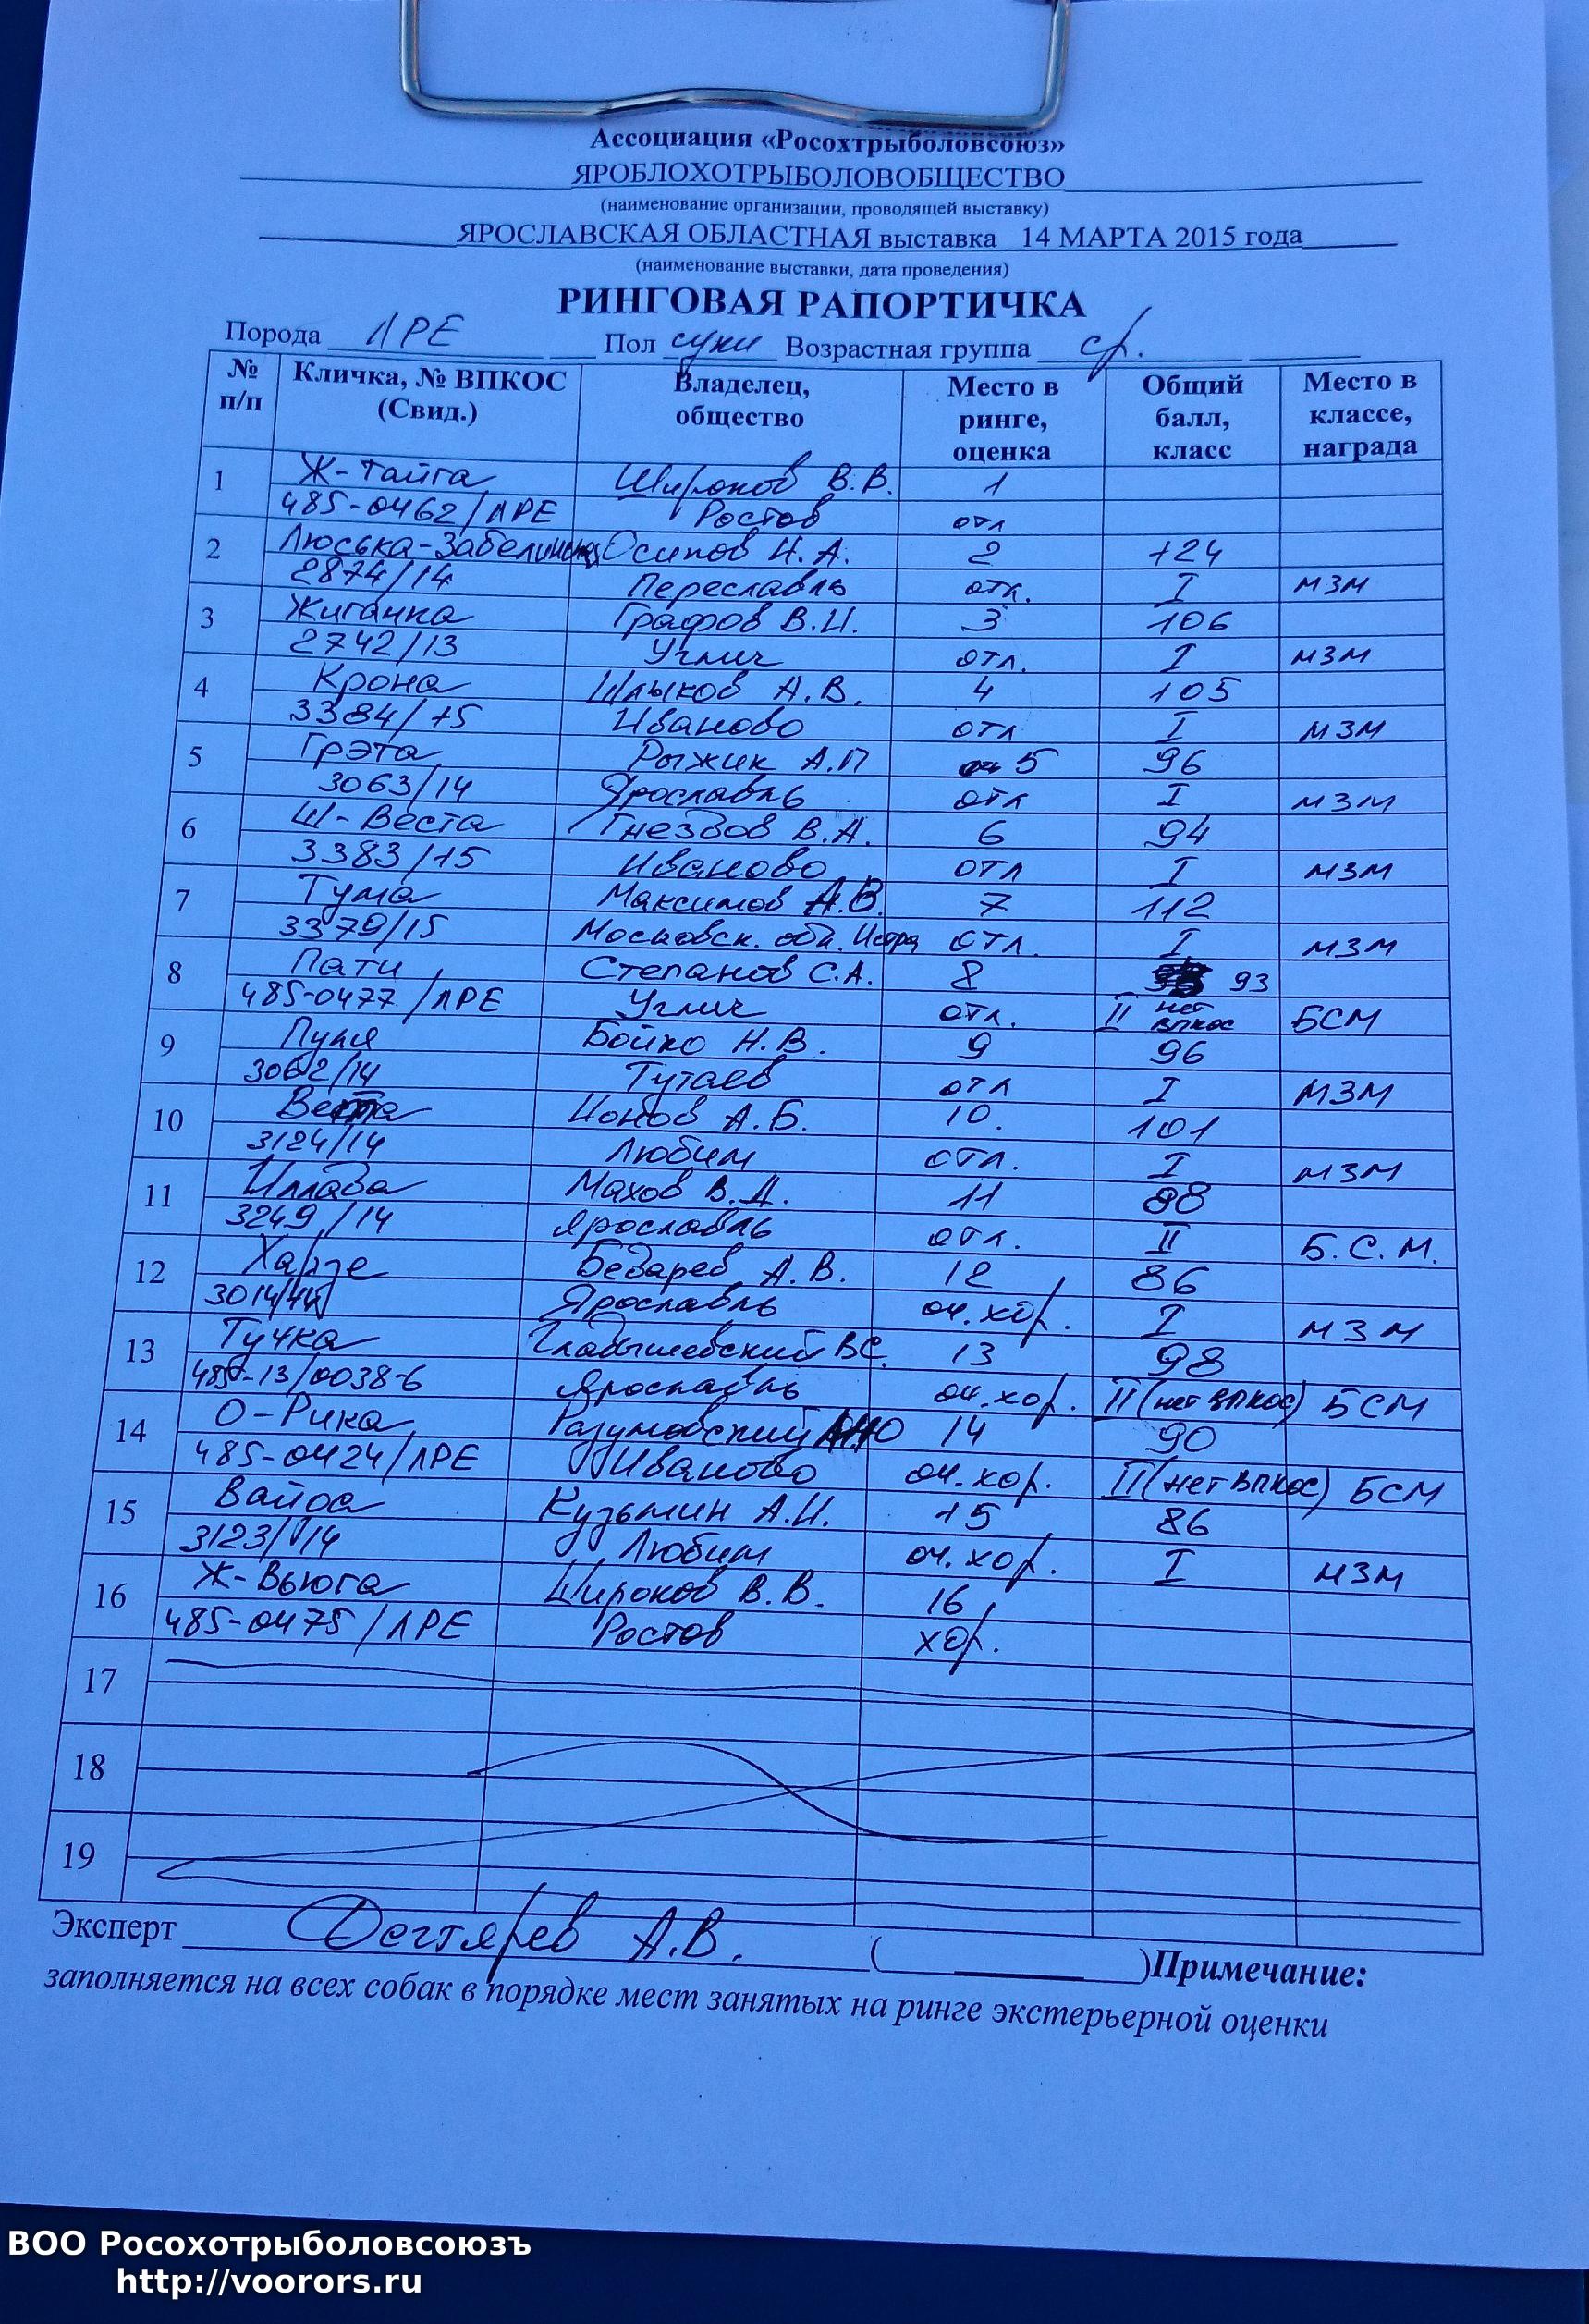 Ассоциация «Росохтрыболовсоюз»
ЯРОБЛОХОТРЫБОЛОВОБЩЕСТВО
(наименование организации, проводящей выставку)
ЯРОСЛАВСКАЯ ОБЛАСТНАЯ выставка 14 МАРТА 2015 года
(наименование выставки, дата проведения)
РИНГОВАЯ РАПОРТИЧКА
Порода ЛРЕ Пол суки Возрастная группа ср.
№ п/п Кличка, № ВПКОС (Свид.) Владелец, общество Место в ринге, оценка Общий балл, класс Место в классе, награда
1 Ж-Тайга Широков В.В. 1
485-0462/ЛРЕ Ростов отл
2 Люська-Забелинская Осипов Н.А. 2 124
2874/14 Переславль отл. I МЗМ
3 Жиганка Графов В.И. 3 106
2742/13 Углич отл. I МЗМ
4 Крона Шлыков А.В. 4 105
3384/15 Иваново отл I МЗМ
5 Грэта Рыжик А.П 5 96
3063/14 Ярославль отл I МЗМ
6 Ш-Веста Гнездов В.А. 6 94
3383/15 Иваново отл I МЗМ
7 Тума Максимов А.В. 7 112
3379/15 Московск. обл. Истра отл. I МЗМ
8 Пати Степанов С.А. 8 93
485-0477/ЛРЕ Углич отл. II нет ВПКОС БСМ
9 Пуля Бойко Н.В. 9 96
3062/14 Тутаев отл I МЗМ
10 Веста Ионов А.Б. 10. 101
3124/14 Любим отл. I МЗМ
11 Иллада Махов В.А. 11 98
3249/14 Ярославль отл. II Б.С.М.
12 Харзе Бедарев А.В. 12 86
3014/14 Ярославль оч.хор. I МЗМ
13 Тучка Гладышевский ВС. 13 98
485-13/0038-6 Ярославль оч.хор. II (нет ВПКОС) БСМ
14 О-Рика Разумовский 14 90
485-0424/ЛРЕ Иваново оч.хор. II (нет ВПКОС) БСМ
15 Вайда Кузьмин А.И. 15 86
3123/14 Любим оч.хор. I МЗМ
16 Ж-Вьюга Широков В.В. 16
485-0475/ЛРЕ Ростов хор.
17
18
19
Эксперт Дегтярев А.В. ( ) Примечание:
заполняется на всех собак в порядке мест занятых на ринге экстерьерной оценки
ВОО Росохотрыболовсоюзъ
http://voorors.ru